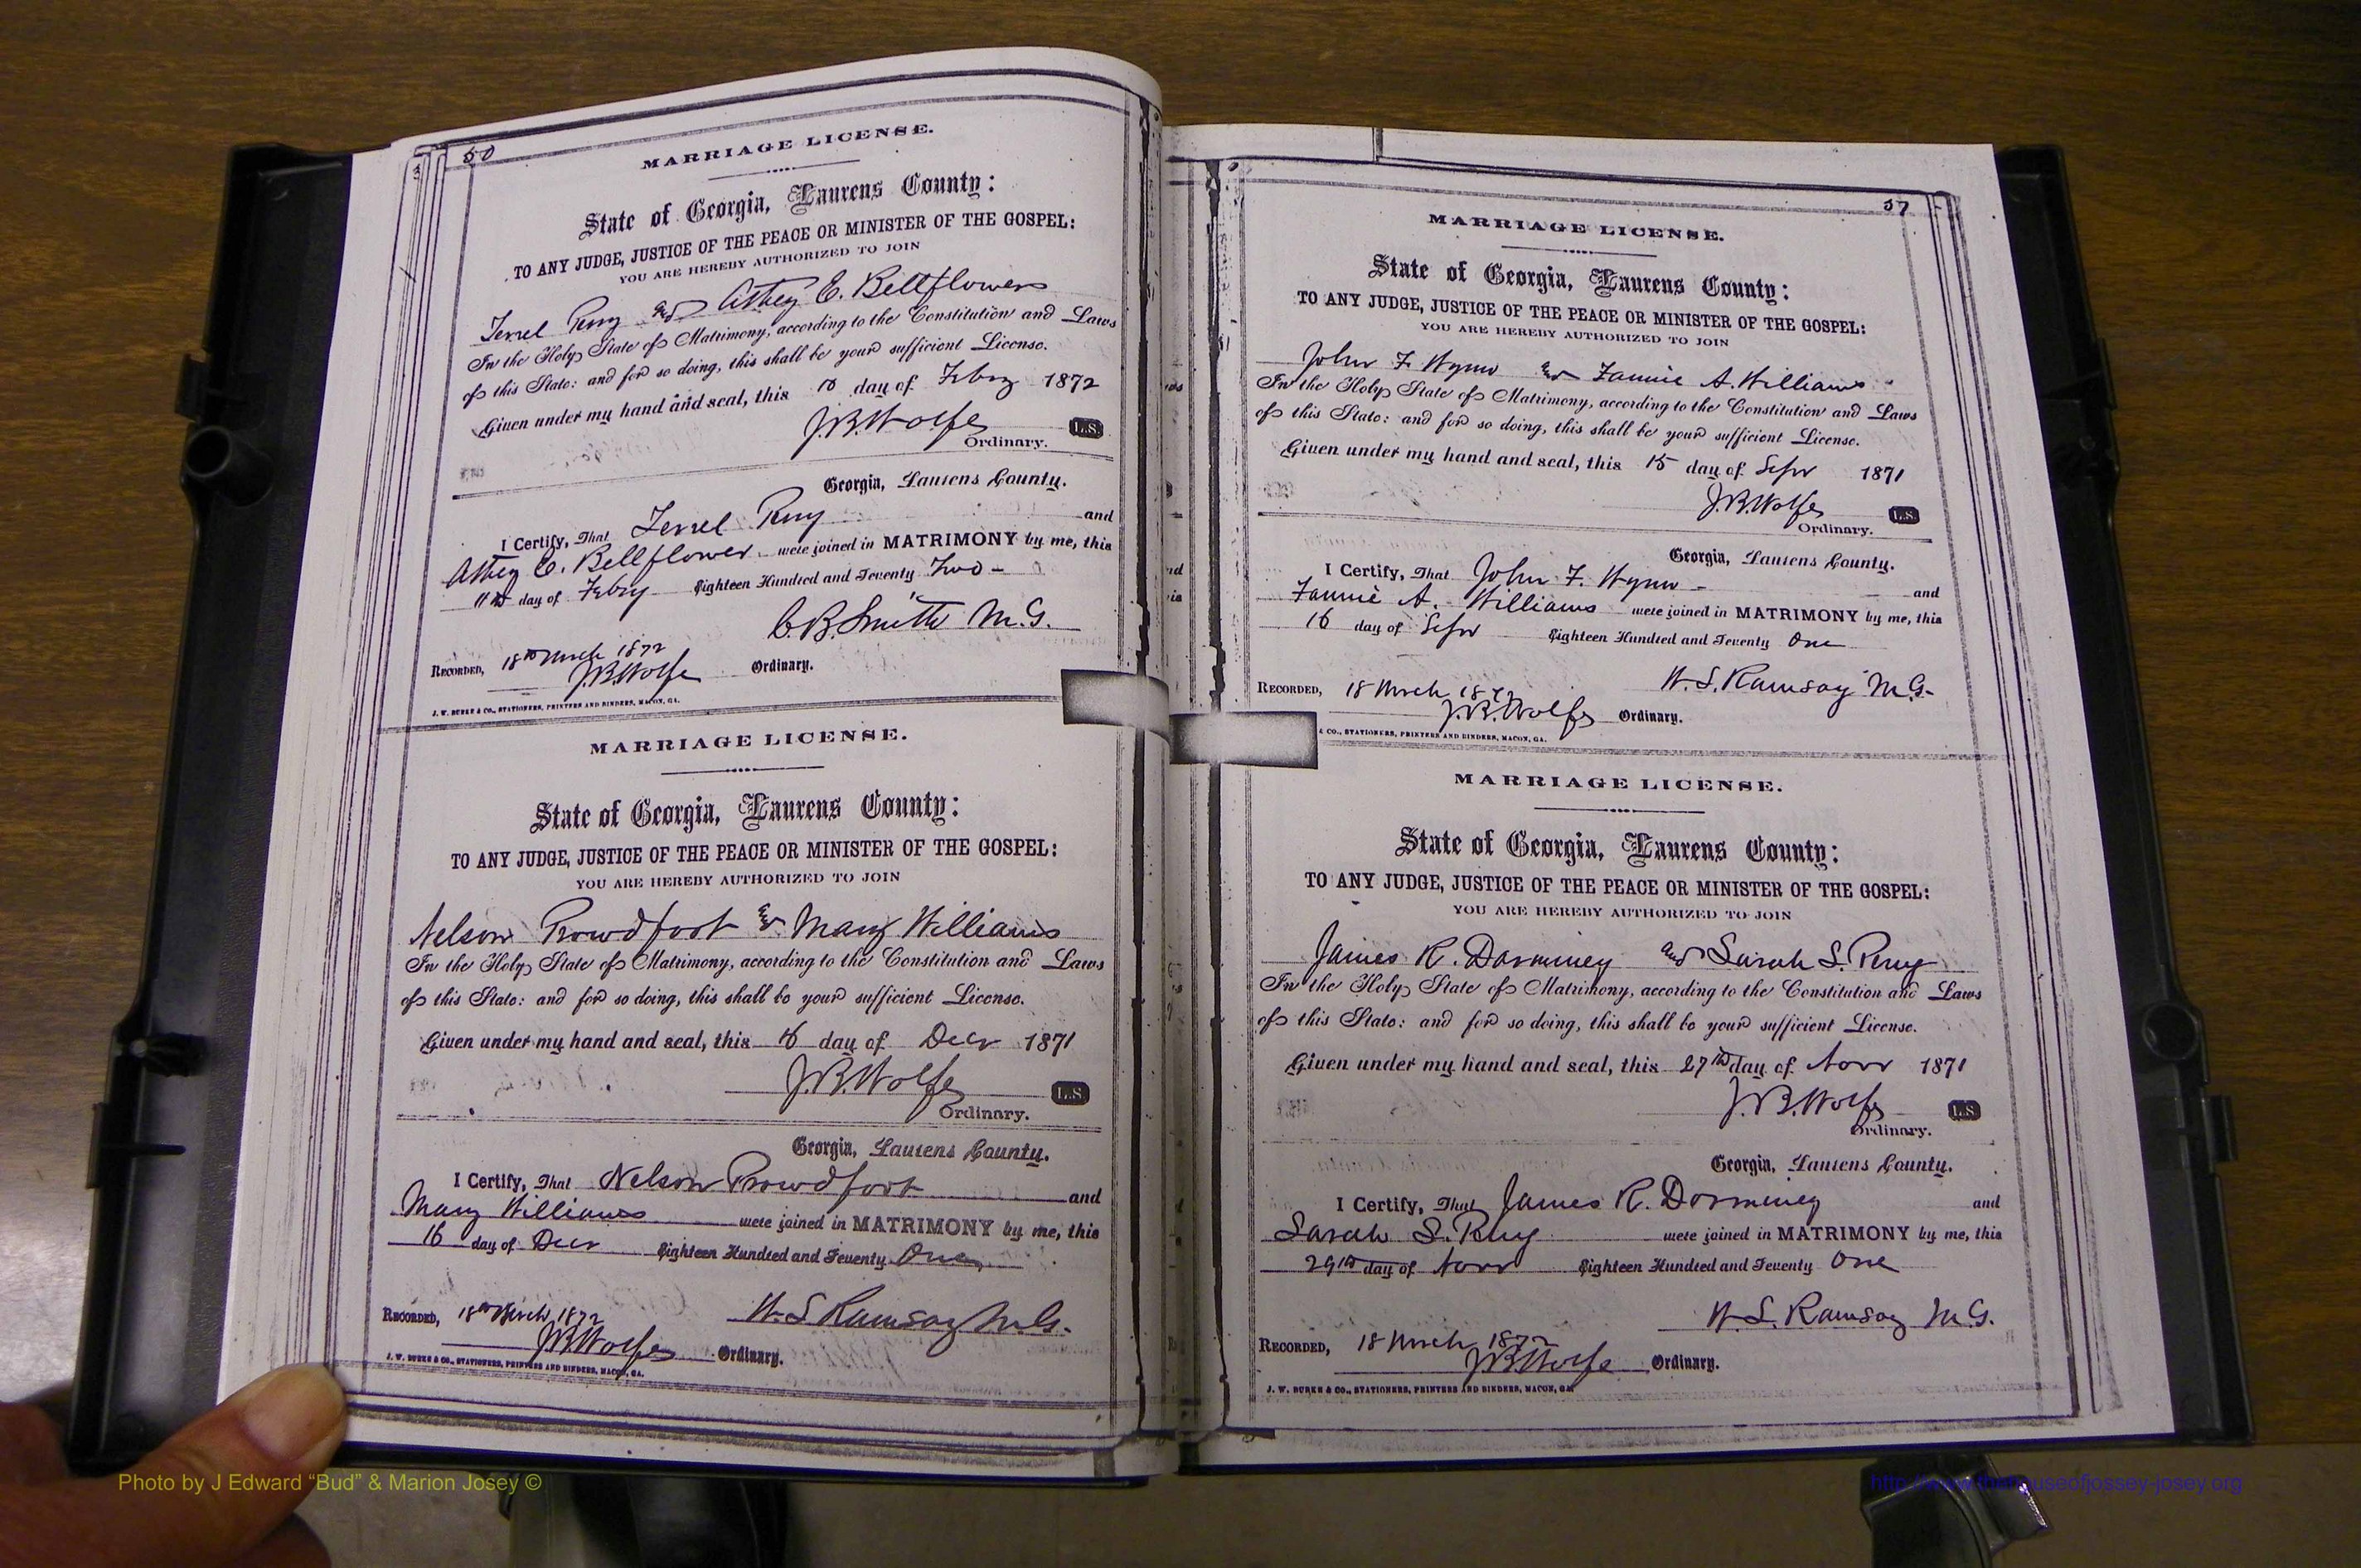 50
MARRIAGE LICENSE.
State of Georgia, Laurens County:
TO ANY JUDGE, JUSTICE OF THE PEACE OR MINISTER OF THE GOSPEL:
YOU ARE HEREBY AUTHORIZED TO JOIN
Terrel Perry and E. Bellflowers
In the Holy State of Matrimony, according to the Constitution and Laws
of this State: and for so doing, this shall be your sufficient License.
Given under my hand and seal, this day of Febry 1872
J.B. Wolfe L.S.
Ordinary.
Georgia, Laurens County.
I Certify, That Terrel Perry and
E. Bellflower were joined in MATRIMONY by me, this
11th day of Febry Eighteen Hundred and Seventy Two
C.B. Smith M.G.
RECORDED, 18th March 1872
J.B. Wolfe Ordinary.
J. W. BURKE & CO., STATIONERS, PRINTERS AND BINDERS, MACON, GA.
MARRIAGE LICENSE.
State of Georgia, Laurens County:
TO ANY JUDGE, JUSTICE OF THE PEACE OR MINISTER OF THE GOSPEL:
YOU ARE HEREBY AUTHORIZED TO JOIN
Nelson Prowdfoot & Mary Williams
In the Holy State of Matrimony, according to the Constitution and Laws
of this State: and for so doing, this shall be your sufficient License.
Given under my hand and seal, this 16 day of Decr 1871
J.B. Wolfe L.S.
Ordinary.
Georgia, Laurens County.
I Certify, That Nelson Prowdfoot and
Mary Williams were joined in MATRIMONY by me, this
16 day of Decr Eighteen Hundred and Seventy One
RECORDED, 18th March 1872 W.S. Ramsay M.G.
J.B. Wolfe Ordinary.
J. W. BURKE & CO., STATIONERS, PRINTERS AND BINDERS, MACON, GA.
57
MARRIAGE LICENSE.
State of Georgia, Laurens County:
TO ANY JUDGE, JUSTICE OF THE PEACE OR MINISTER OF THE GOSPEL:
YOU ARE HEREBY AUTHORIZED TO JOIN
John F. Wynn & Fannie A. Williams
In the Holy State of Matrimony, according to the Constitution and Laws
of this State: and for so doing, this shall be your sufficient License.
Given under my hand and seal, this 15 day of Sepr 1871
J.B. Wolfe L.S.
Ordinary.
Georgia, Laurens County.
I Certify, That John F. Wynn and
Fannie A. Williams were joined in MATRIMONY by me, this
16 day of Sepr Eighteen Hundred and Seventy One
W.S. Ramsay M.G.
RECORDED, 18 March 1872
J.B. Wolfe Ordinary.
& CO., STATIONERS, PRINTERS AND BINDERS, MACON, GA.
MARRIAGE LICENSE.
State of Georgia, Laurens County:
TO ANY JUDGE, JUSTICE OF THE PEACE OR MINISTER OF THE GOSPEL:
YOU ARE HEREBY AUTHORIZED TO JOIN
James R. Dorminey and Sarah S. Perry
In the Holy State of Matrimony, according to the Constitution and Laws
of this State: and for so doing, this shall be your sufficient License.
Given under my hand and seal, this 27th day of Novr 1871
J.B. Wolfe L.S.
Ordinary.
Georgia, Laurens County.
I Certify, That James R. Dorminey and
Sarah S. Perry were joined in MATRIMONY by me, this
29th day of Novr Eighteen Hundred and Seventy One
W.S. Ramsay M.G.
RECORDED, 18 March 1872
J.B. Wolfe Ordinary.
J. W. BURKE & CO., STATIONERS, PRINTERS AND BINDERS, MACON, GA.
Photo by J Edward “Bud” & Marion Josey ©
http://www.thehouseofjossey-josey.org